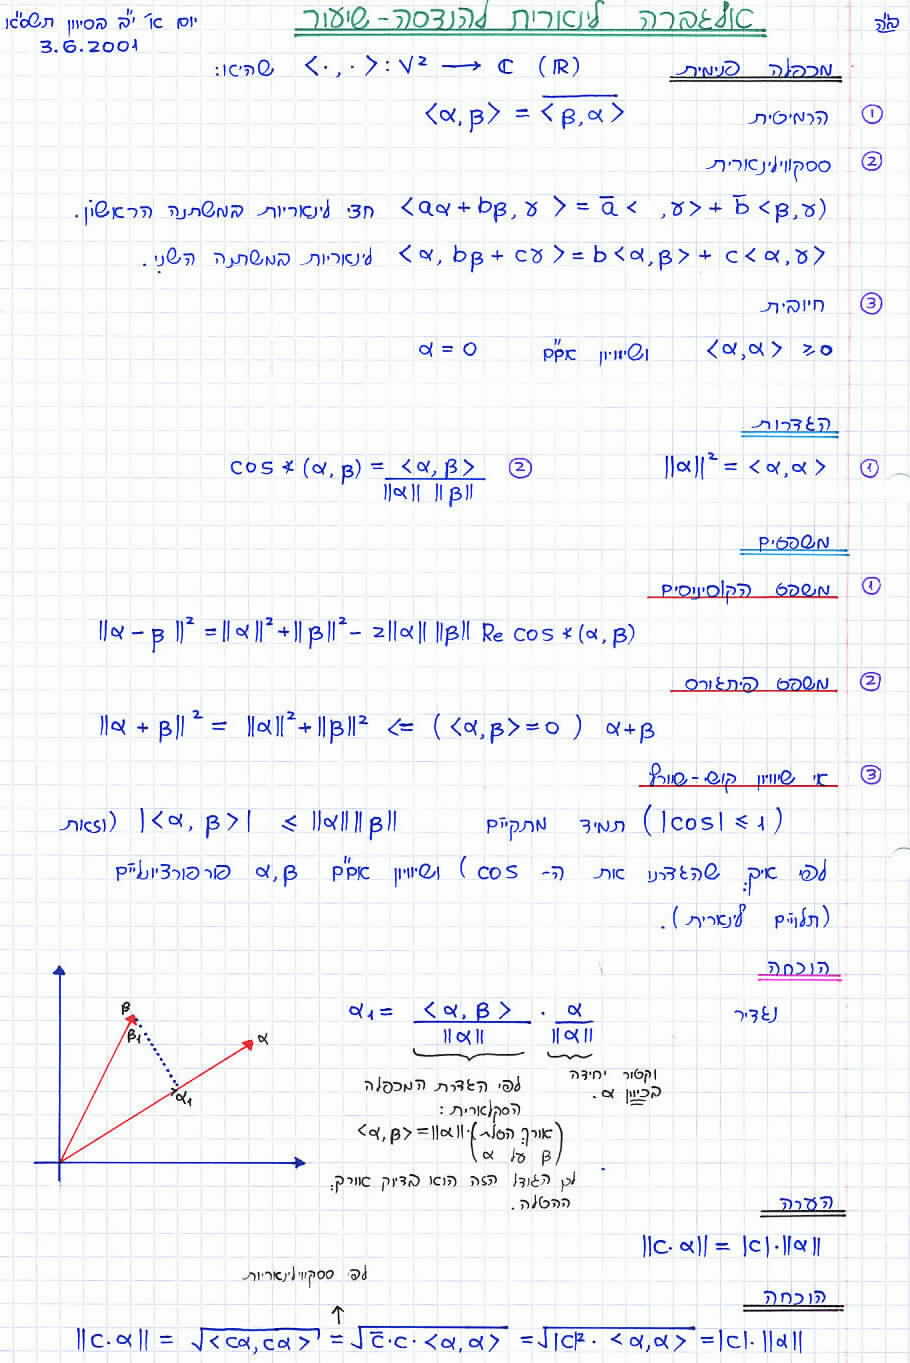 ב"ה
אלגברה לינארית להנדסה-שיעור
יום א' י"ב בסיוון תשס"א
3.6.2001
מכפלה פנימית < · , · > : V² → ℂ (ℝ) שהיא:
① הרמיטית <α, β> = \overline{<β, α>}
② ססקווילינארית
<aα + bβ, γ> = ā< , γ> + b̄<β, γ) חצי לינאריות במשתנה הראשון.
<α, bβ + cγ> = b<α, β> + c<α, γ> לינאריות במשתנה השני.
③ חיובית
<α, α> ≥ 0 ושיוויון אמ"מ α = 0
הגדרות
① ||α||² = <α, α>
② cos ∢(α, β) = <α, β> / ||α|| ||β||
משפטים
① משפט הקוסינוסים
||α - β||² = ||α||² + ||β||² - 2||α|| ||β|| Re cos ∢(α, β)
② משפט פיתגורס
||α + β||² = ||α||² + ||β||² <= (<α, β> = 0) α+β
③ אי שיוויון קושי-שוורץ
(|cos| ≤ 1) תמיד מתקיים |<α, β>| ≤ ||α|| ||β|| (וזאת
לפי איך שהגדרנו את ה- cos) ושיוויון אמ"מ α, β פרופורציונליים
(תלויים לינארית).
הוכחה
נגדיר α₁ = <α, β> / ||α|| · α / ||α||
וקטור יחידה
בכיוון α.
לפי הגדרת המכפלה
הסקלארית:
<α, β> = ||α|| · (אורך הטלת
β על α)
לכן הגודל הזה הוא בדיוק אורך
ההטלה.
β
β₁
α
α₁
הערה
||c·α|| = |c|·||α||
הוכחה
לפי ססקווילינאריות
↑
||c·α|| = √<cα, cα> = √c̄·c·<α, α> = √|c|²·<α, α> = |c|·||α||